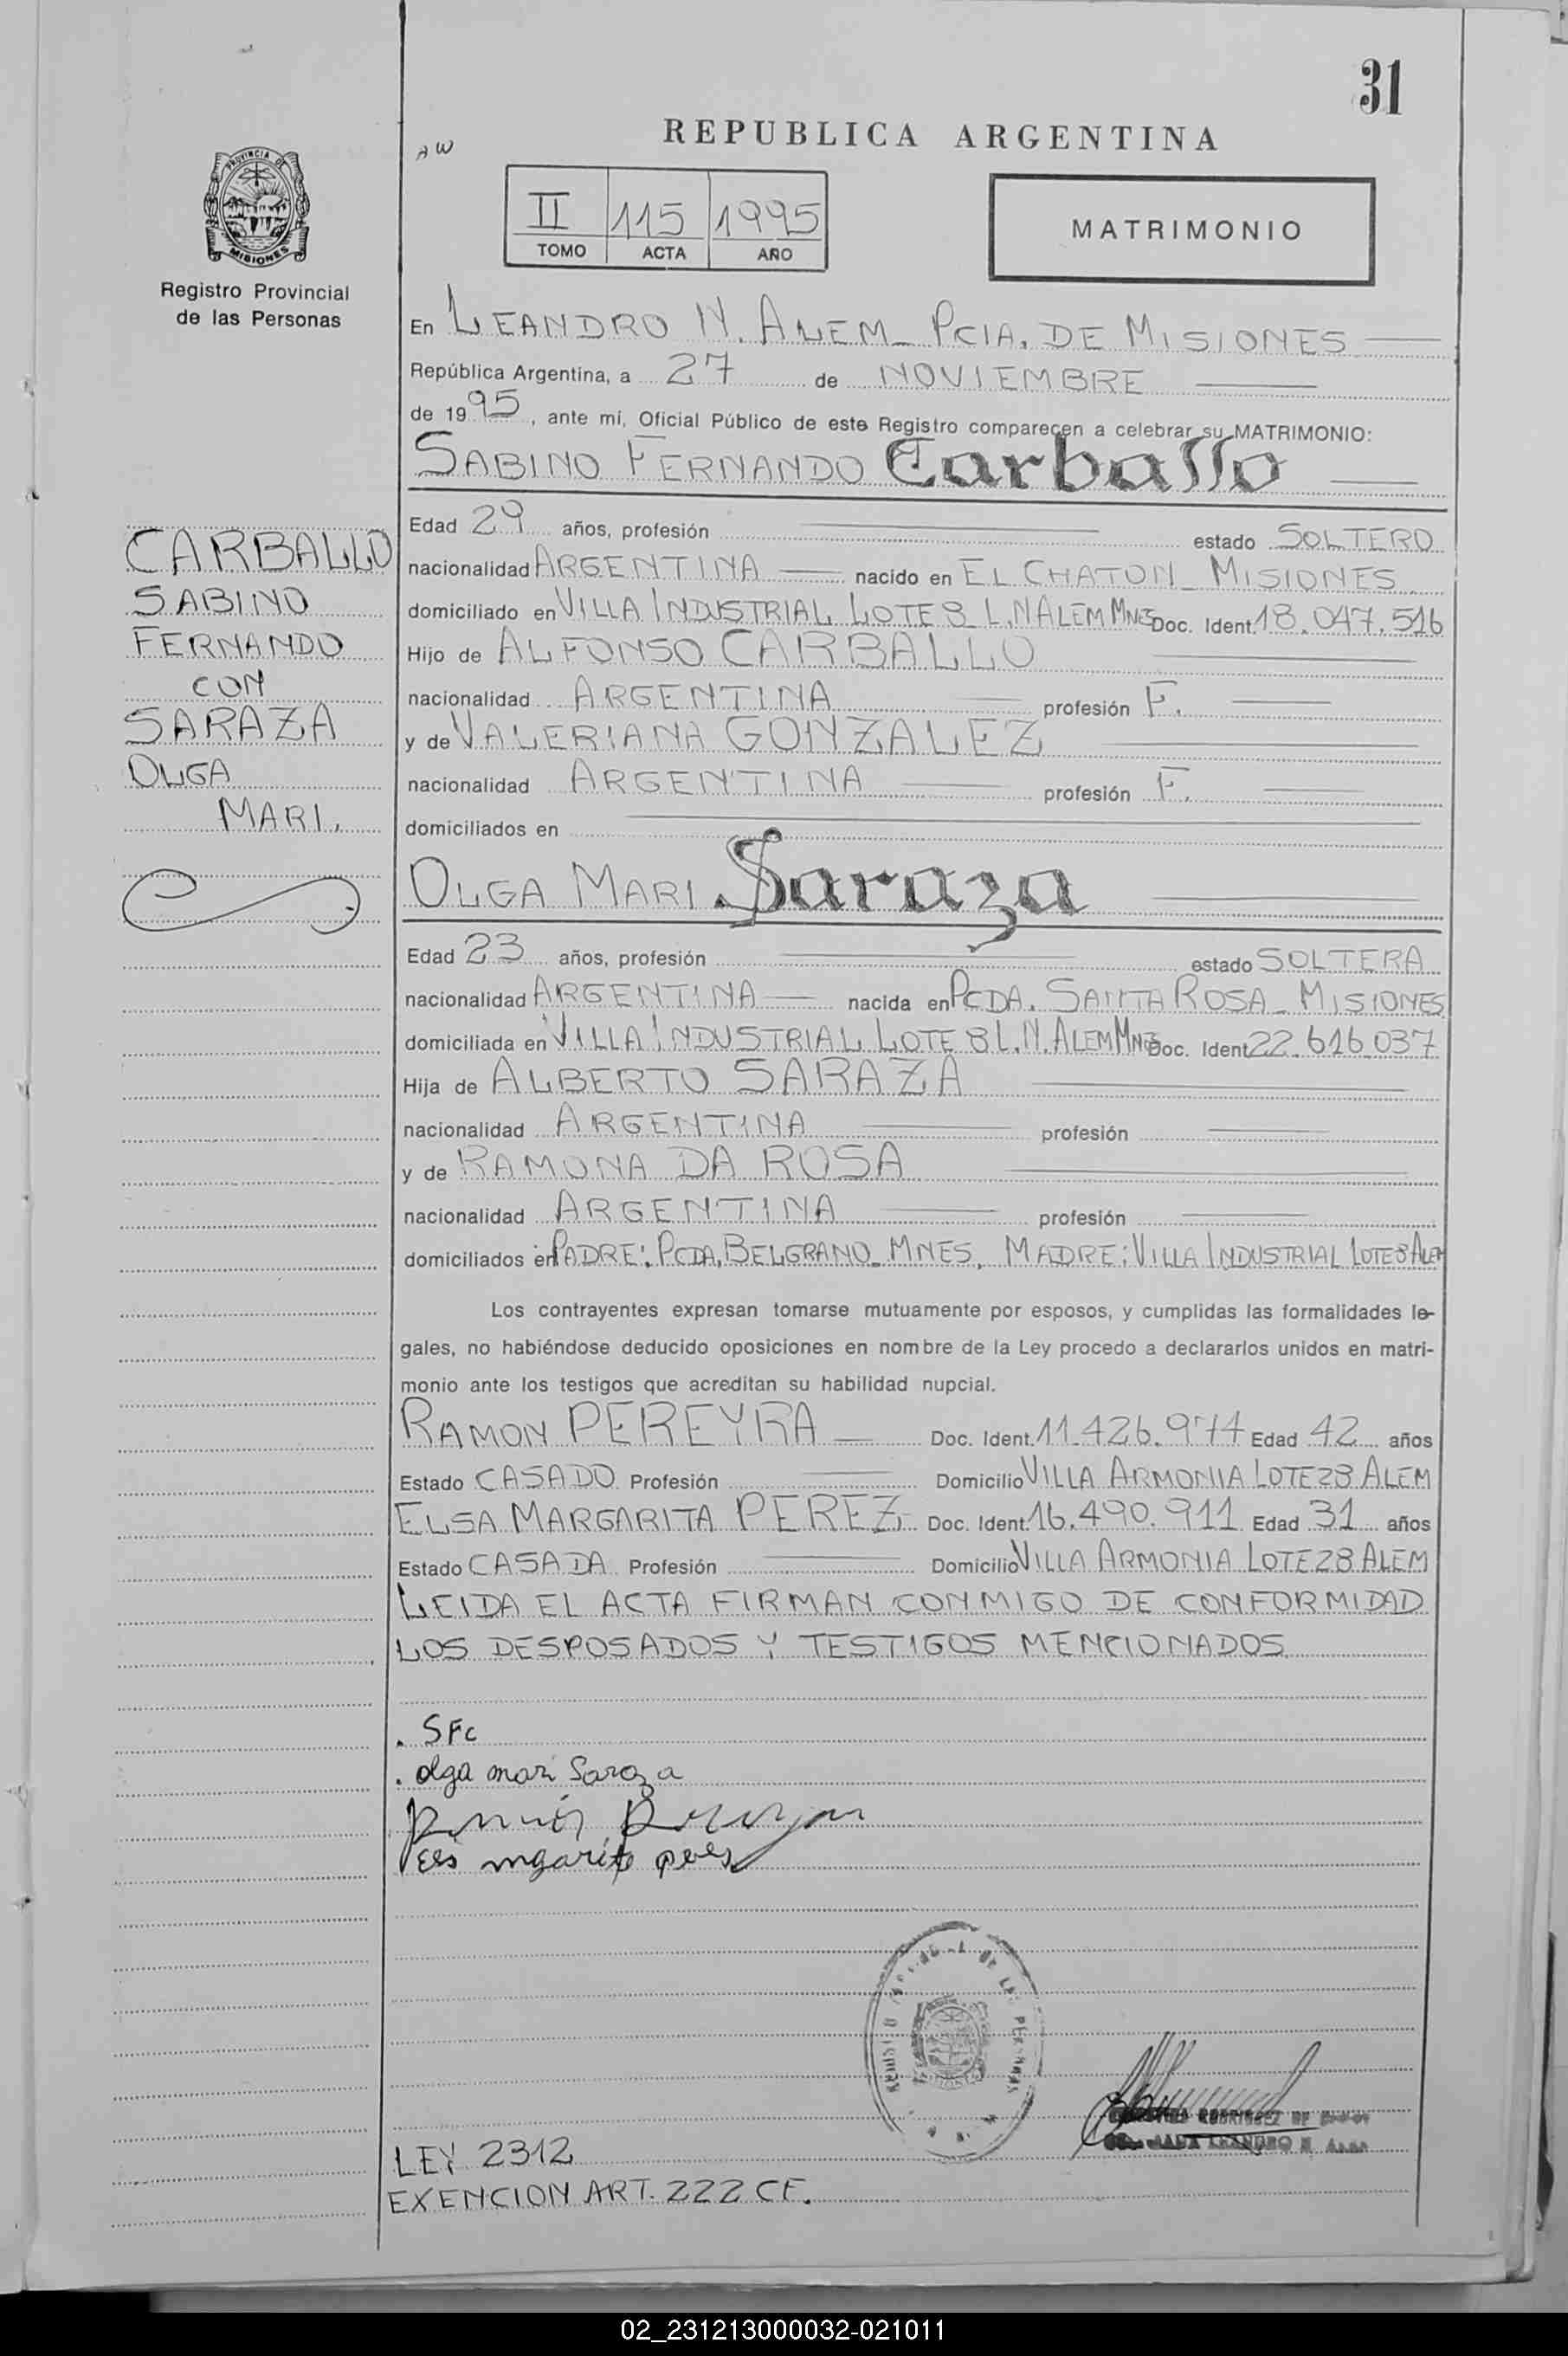 31
REPUBLICA ARGENTINA
AW
PROVINCIA DE
MISIONES
Registro Provincial
de las Personas
II 115 1995
TOMO ACTA AÑO
MATRIMONIO
En LEANDRO N. ALEM_ PCIA. DE MISIONES
República Argentina, a 27 de NOVIEMBRE
de 1995, ante mí, Oficial Público de este Registro comparecen a celebrar su MATRIMONIO:
SABINO FERNANDO Carballo
Edad 29 años, profesión estado SOLTERO
nacionalidad ARGENTINA nacido en EL CHATON_ MISIONES
domiciliado en VILLA INDUSTRIAL LOTE 8 L.N ALEM MNES Doc. Ident. 18.047.516
Hijo de ALFONSO CARBALLO
nacionalidad ARGENTINA profesión F.
y de VALERIANA GONZALEZ
nacionalidad ARGENTINA profesión F.
domiciliados en
CARBALLO
SABINO
FERNANDO
CON
SARAZA
OLGA
MARI.
OLGA MARI Saraza
Edad 23 años, profesión estado SOLTERA
nacionalidad ARGENTINA nacida en PCDA. SANTA ROSA_ MISIONES
domiciliada en VILLA INDUSTRIAL LOTE 8 L.N. ALEM MNES Doc. Ident. 22.616.037
Hija de ALBERTO SARAZA
nacionalidad ARGENTINA profesión
y de RAMONA DA ROSA
nacionalidad ARGENTINA profesión
domiciliados en PADRE: PCDA. BELGRANO_ MNES. MADRE: VILLA INDUSTRIAL LOTE 8 ALEM
Los contrayentes expresan tomarse mutuamente por esposos, y cumplidas las formalidades le-
gales, no habiéndose deducido oposiciones en nombre de la Ley procedo a declararlos unidos en matri-
monio ante los testigos que acreditan su habilidad nupcial.
RAMON PEREYRA Doc. Ident. 11.426.974 Edad 42 años
Estado CASADO Profesión Domicilio VILLA ARMONIA LOTE 28 ALEM
ELSA MARGARITA PEREZ Doc. Ident. 16.490.911 Edad 31 años
Estado CASADA Profesión Domicilio VILLA ARMONIA LOTE 28 ALEM
LEIDA EL ACTA FIRMAN CONMIGO DE CONFORMIDAD
LOS DESPOSADOS Y TESTIGOS MENCIONADOS
. SFc
. olga mari Saraza
RODRIGUEZ DE
LEANDRO N. ALEM
LEY 2312
EXENCION ART. 222 CF.
02_231213000032-021011